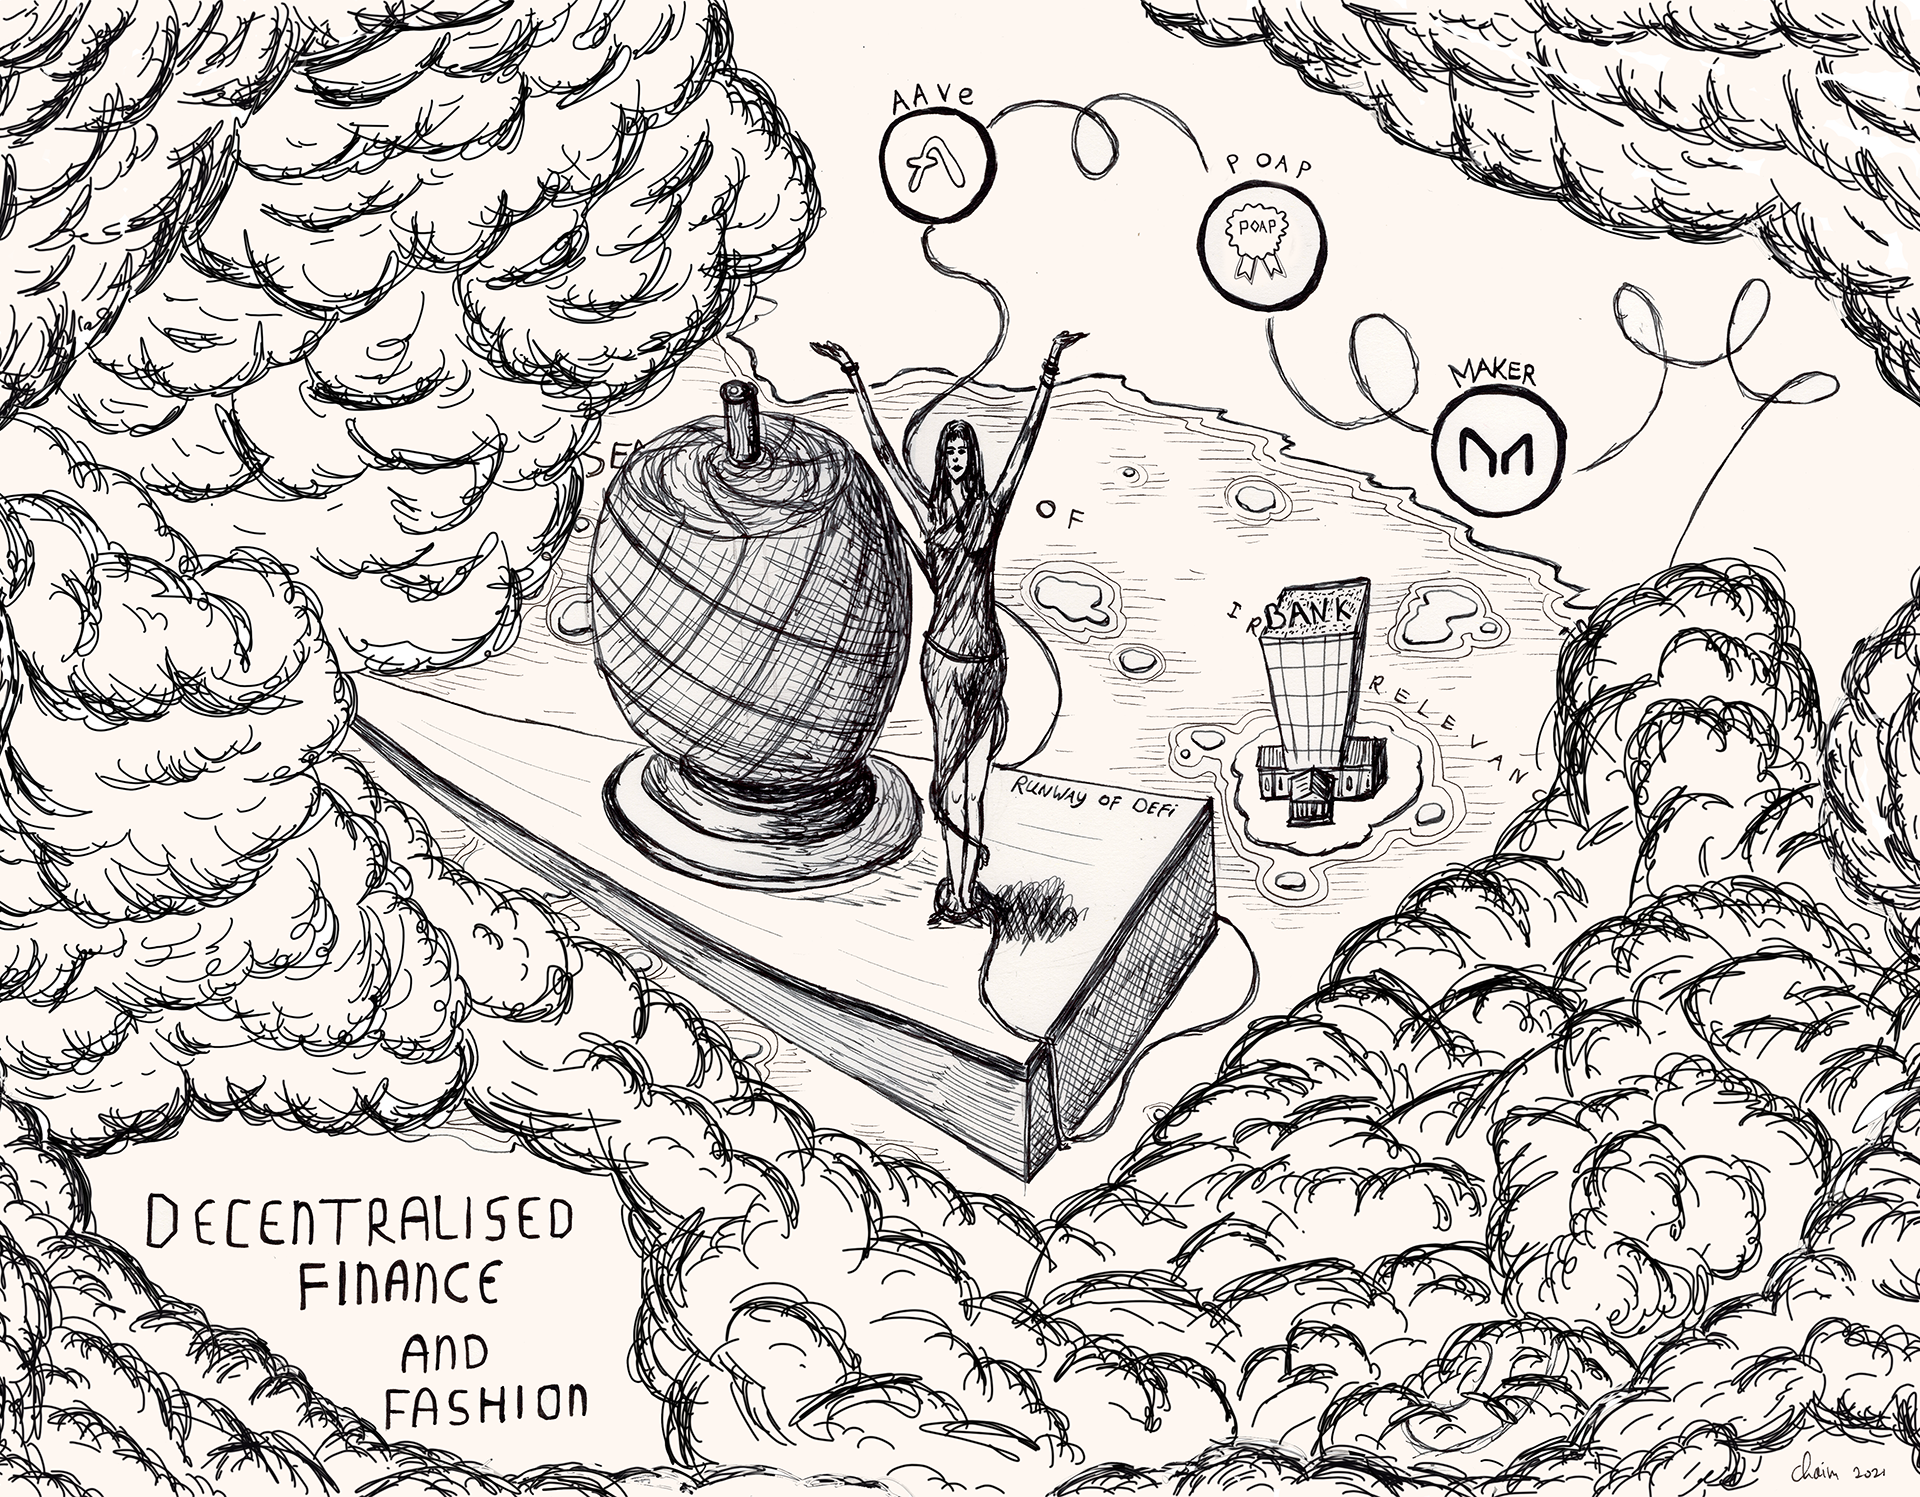 AAVe
POAP
POAP
MAKER
SEA
OF
IR
BANK
RELEVAN
RUNWAY OF DEFi
DECENTRALISED
FINANCE
AND
FASHION
Chaim 2021